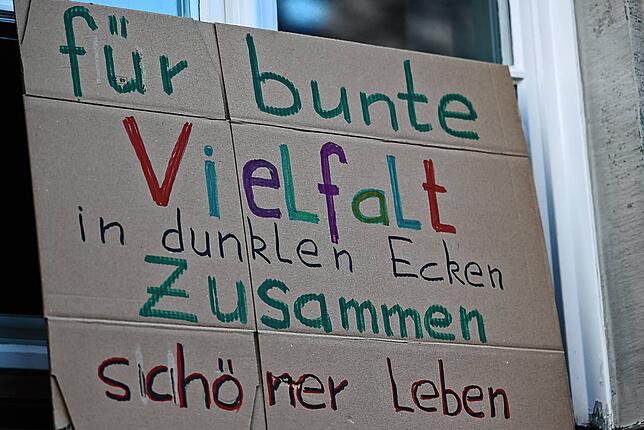 für bunte
Vielfalt
in dunklen Ecken
Zusammen
schöner Leben